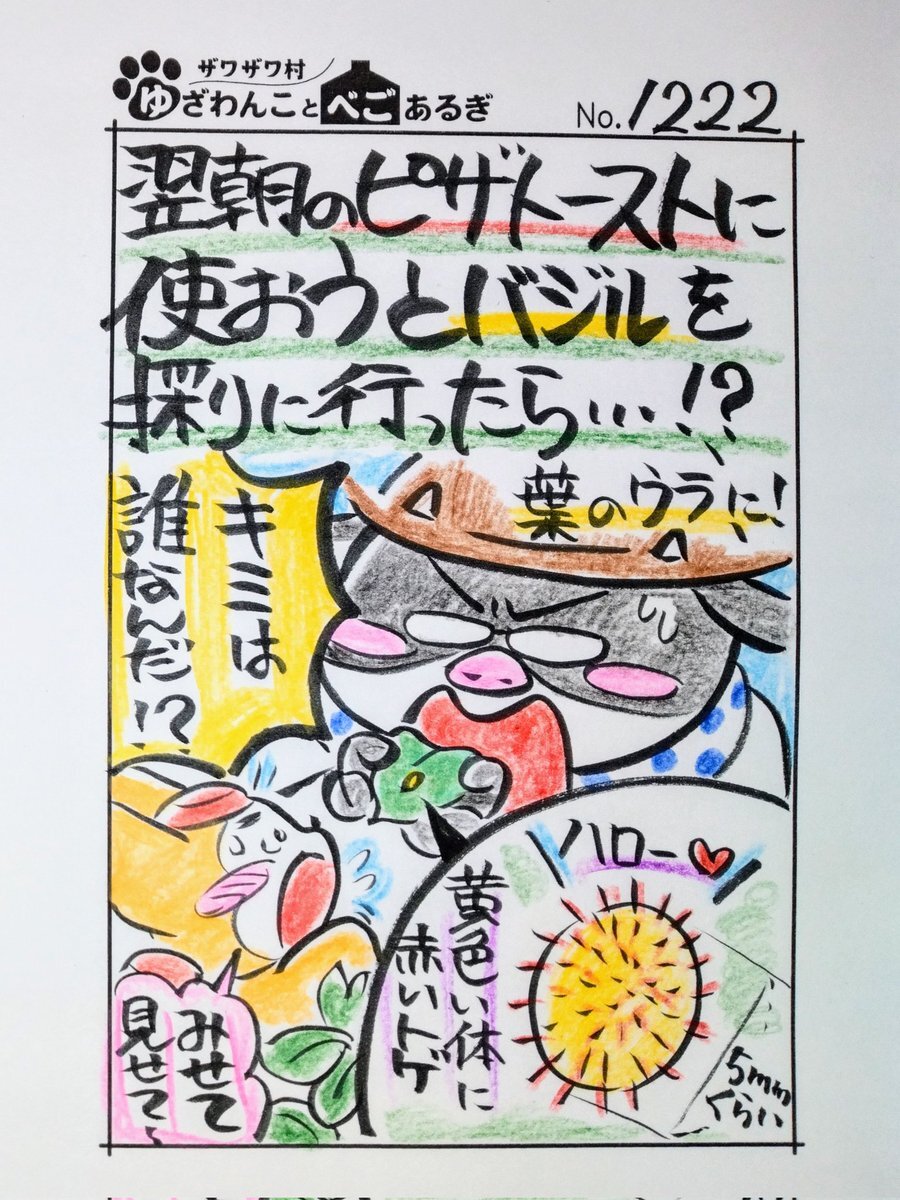 ザワザワ村
ゆざわんことべごあるぎ
No.1222
翌朝のピザトーストに
使おうとバジルを
採りに行ったら…!?
葉のウラに!
キミは
誰なんだ!?
ハロー♥
黄色い体に
赤いトゲ
5mm
くらい
みせて
見せて〜